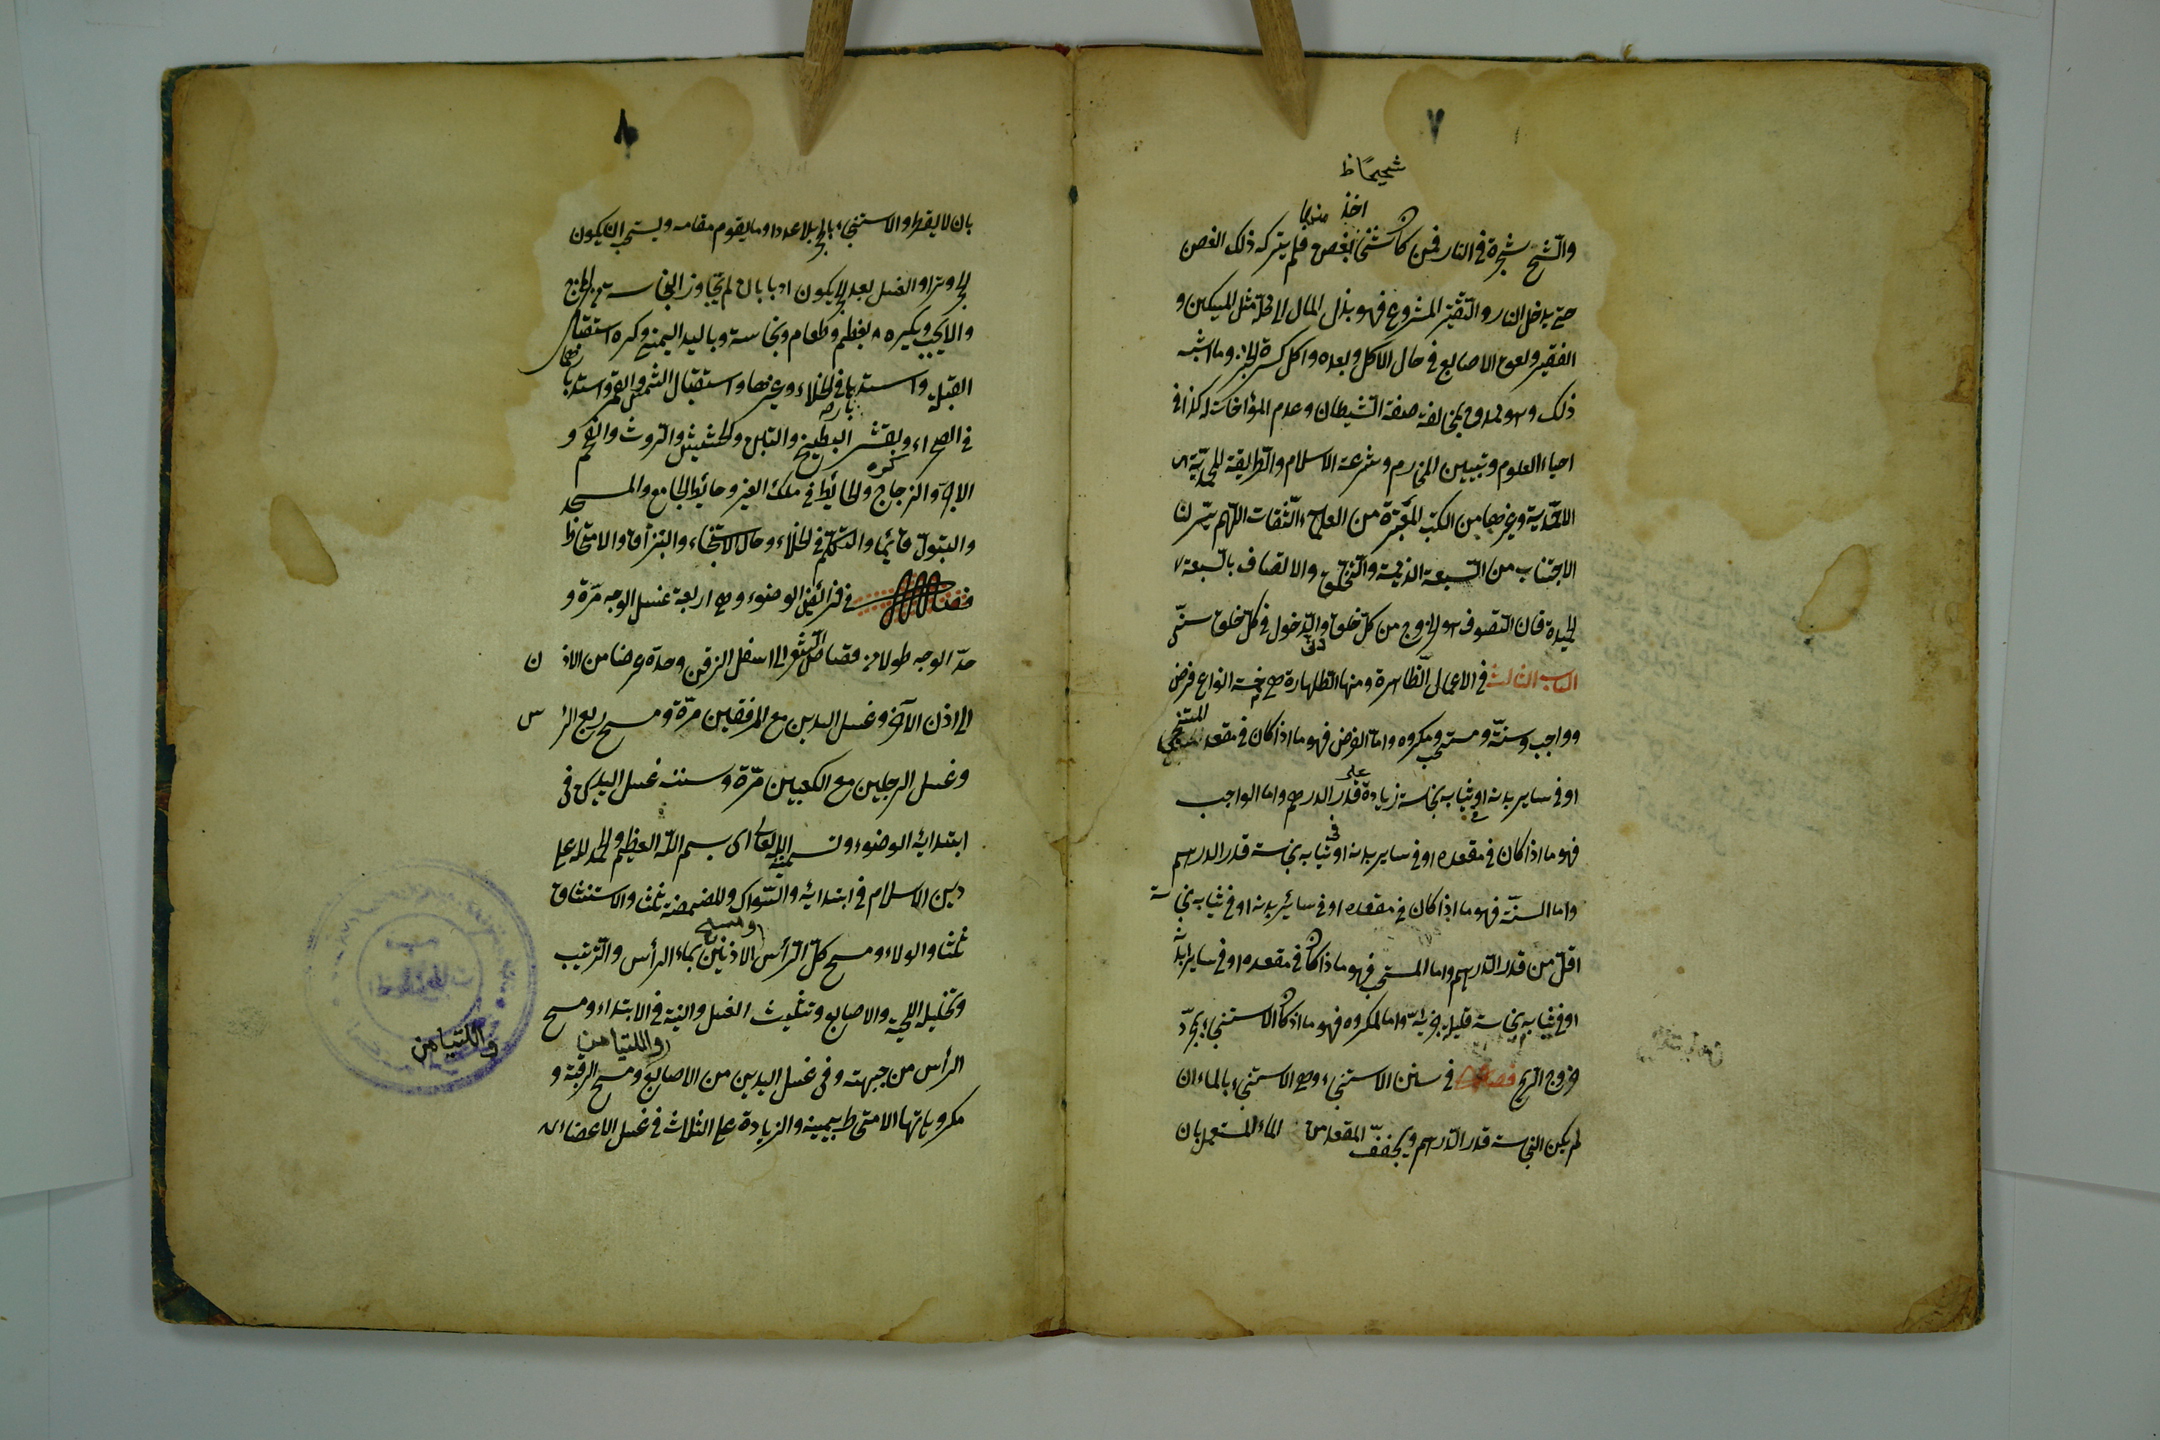 ٧
شحيحًا ظ
اخذ منها
والشح شجرة في النار فمن كان شحيحا بغصن فلم يتركه ذلك الغصن
حتى يدخل النار والتقتير المشروع فهو بذل المال الى محله مثل المسكين و
الفقير ولعق الاصابع في حال الاكل وبعده واكل كسرة الخبز وما اشبه
ذلك وهو ممدوح بمخالفة صفة الشيطان وعدم المؤاخات له كذا في
احياء العلوم وتبيين المحارم وشرعة الاسلام والطريقة المحمدية
الاحمدية وغيرها من الكتب المعتبرة من العلماء الثقات اللهم يسر لنا
الاجتناب من السبعة الذميمة والتخلق والاتصاف بالسبعة
الحميدة فان التصوف هو الخروج من كل خلق دنى والدخول في كل خلق سنّى
الباب الثالث في الاعمال الظاهرة ومنها الطهارة هي خمسة انواع فرض
وواجب وسنة ومستحب ومكروه واما الفرض فهو ما اذا كان في مقعد المستنجي
او في ساير بدنه او ثيابه نجاسة زيادة على قدر الدرهم واما الواجب
فهو ما اذا كان في مقعده او في ساير بدنه او في ثيابه نجاسة قدر الدرهم
واما السنة فهو ما اذا كان في مقعده او في سائر بدنه او في ثيابه نجاسة
اقل من قدر الدرهم واما المستحب فهو ما اذا كان في مقعده او في ساير بدنه
او في ثيابه نجاسة قليلة جزئية واما المكروه فهو ما اذا كان الاستنجاء بمجرد
خروج الريح فصل في سنن الاستنجاء وهي الاستنجاء بالماء ان
لم يكن النجاسة قدر الدرهم ويجفف المقعد من الماء المستعمل بان
٨
بان لا يقطر والاستنجاء بالحجر بلا عدد او ما يقوم مقامه ويستحب ان يكون
الحجر وترا والغسل بعد الحجر يكون ادبا بان لم يتجاوز النجاسة عن المخرج
والا يجب ويكره بعظم وطعام ونجاسة وباليد اليمنى وكره استقبال
القبلة واستدبارها في الخلاء وغيرها واستقبال الشمس والقمر واستدبارهما
في الصحراء وبقشر البطيخ والتبن والحشيش والروث والفحم و
الاجر والزجاج والحائط في ملك الغير وحائط الجامع والمسجد
والبول قائما والتكلم في الخلاء وحال الاستنجاء والبزاق والامتخاط
فصل في فرائض الوضوء وهي اربعة غسل الوجه مرّة و
حدّ الوجه طولا من قصاص الشعر الى اسفل الذقن وحده عرضا من الاذن
الى اذن الآخر وغسل اليدين مع المرفقين مرّة ومسح ربع الراس
وغسل الرجلين مع الكعبين مرّة وسننه غسل اليدين في
ابتدائه الوضوء وتسمية الله تعالى اى بسم الله العظيم والحمد لله على
دين الاسلام في ابتدائه والسواك والمضمضة ثلثا والاستنشاق
ثلثا والولاء ومسح كل الرأس ومسح الاذنين بماء الرأس والترتيب
وتخليل اللحية والاصابع وتثليث الغسل والنية في الابتداء ومسح
الرأس من جبهته وفي غسل اليدين من الاصابع ومسح الرقبة و والتيامن
مكروهاتها الامتخاط بيمينه والزيادة على الثلاث في غسل الاعضاء
والتيامن